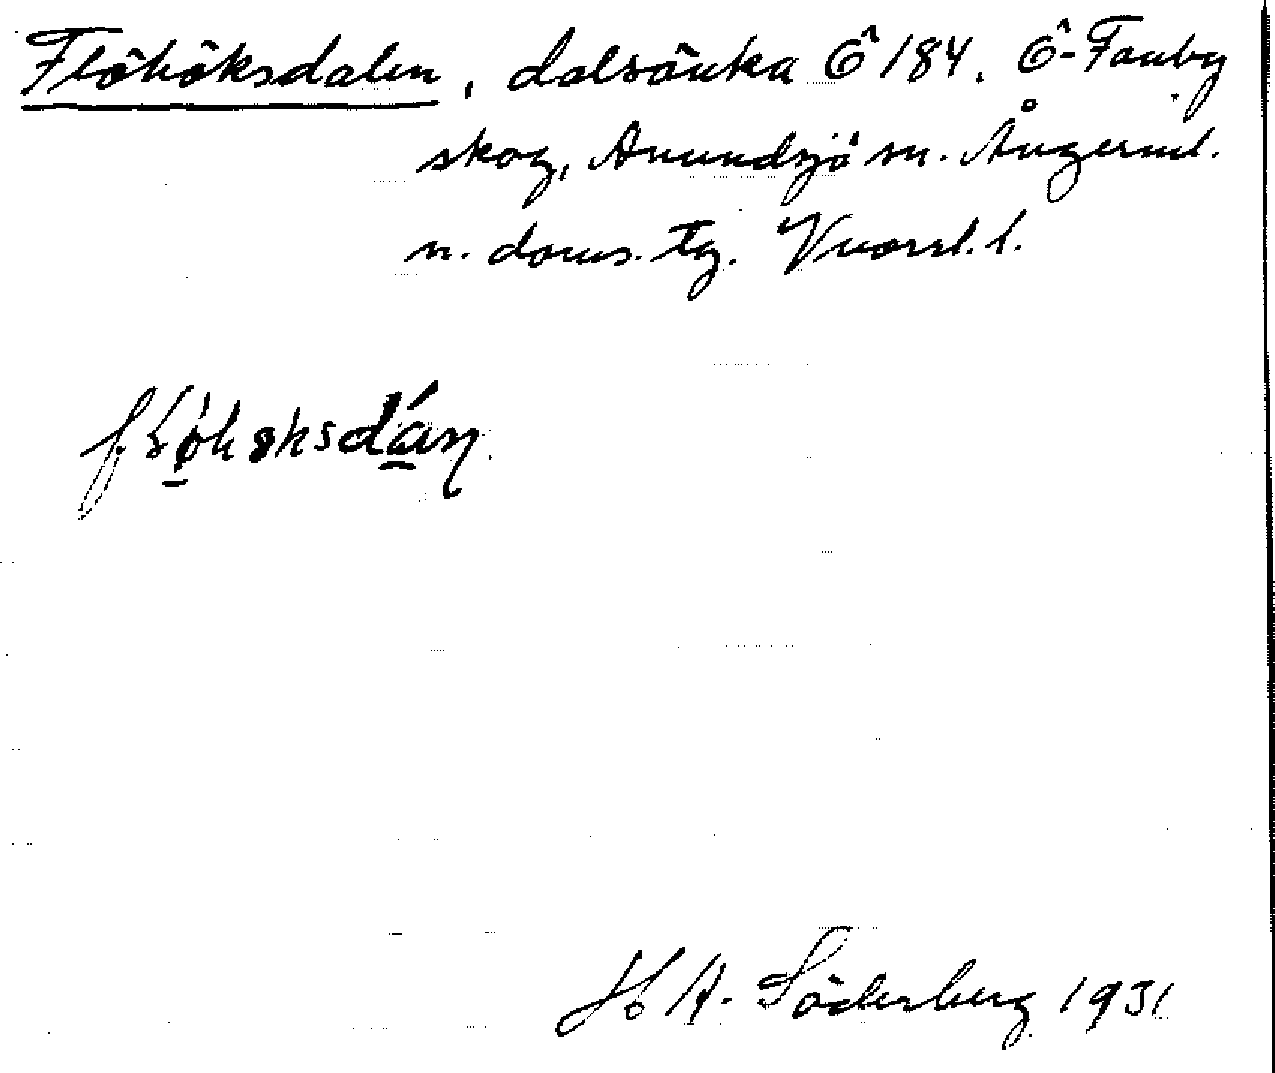 Flöhöksdalen, dalsänka Ö 184. Ö-Fanby
skog, Anundsjö sn. Ångerml.
n. doms. tg. Vuorsl. l.
H A. Söderberg 1931